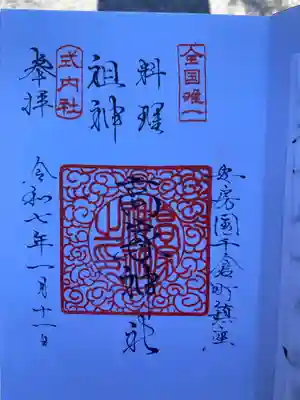 全国唯一
料理
祖神
式内社
奉拝
安房國千倉町鎮座
高家神社
令和七年一月十一日